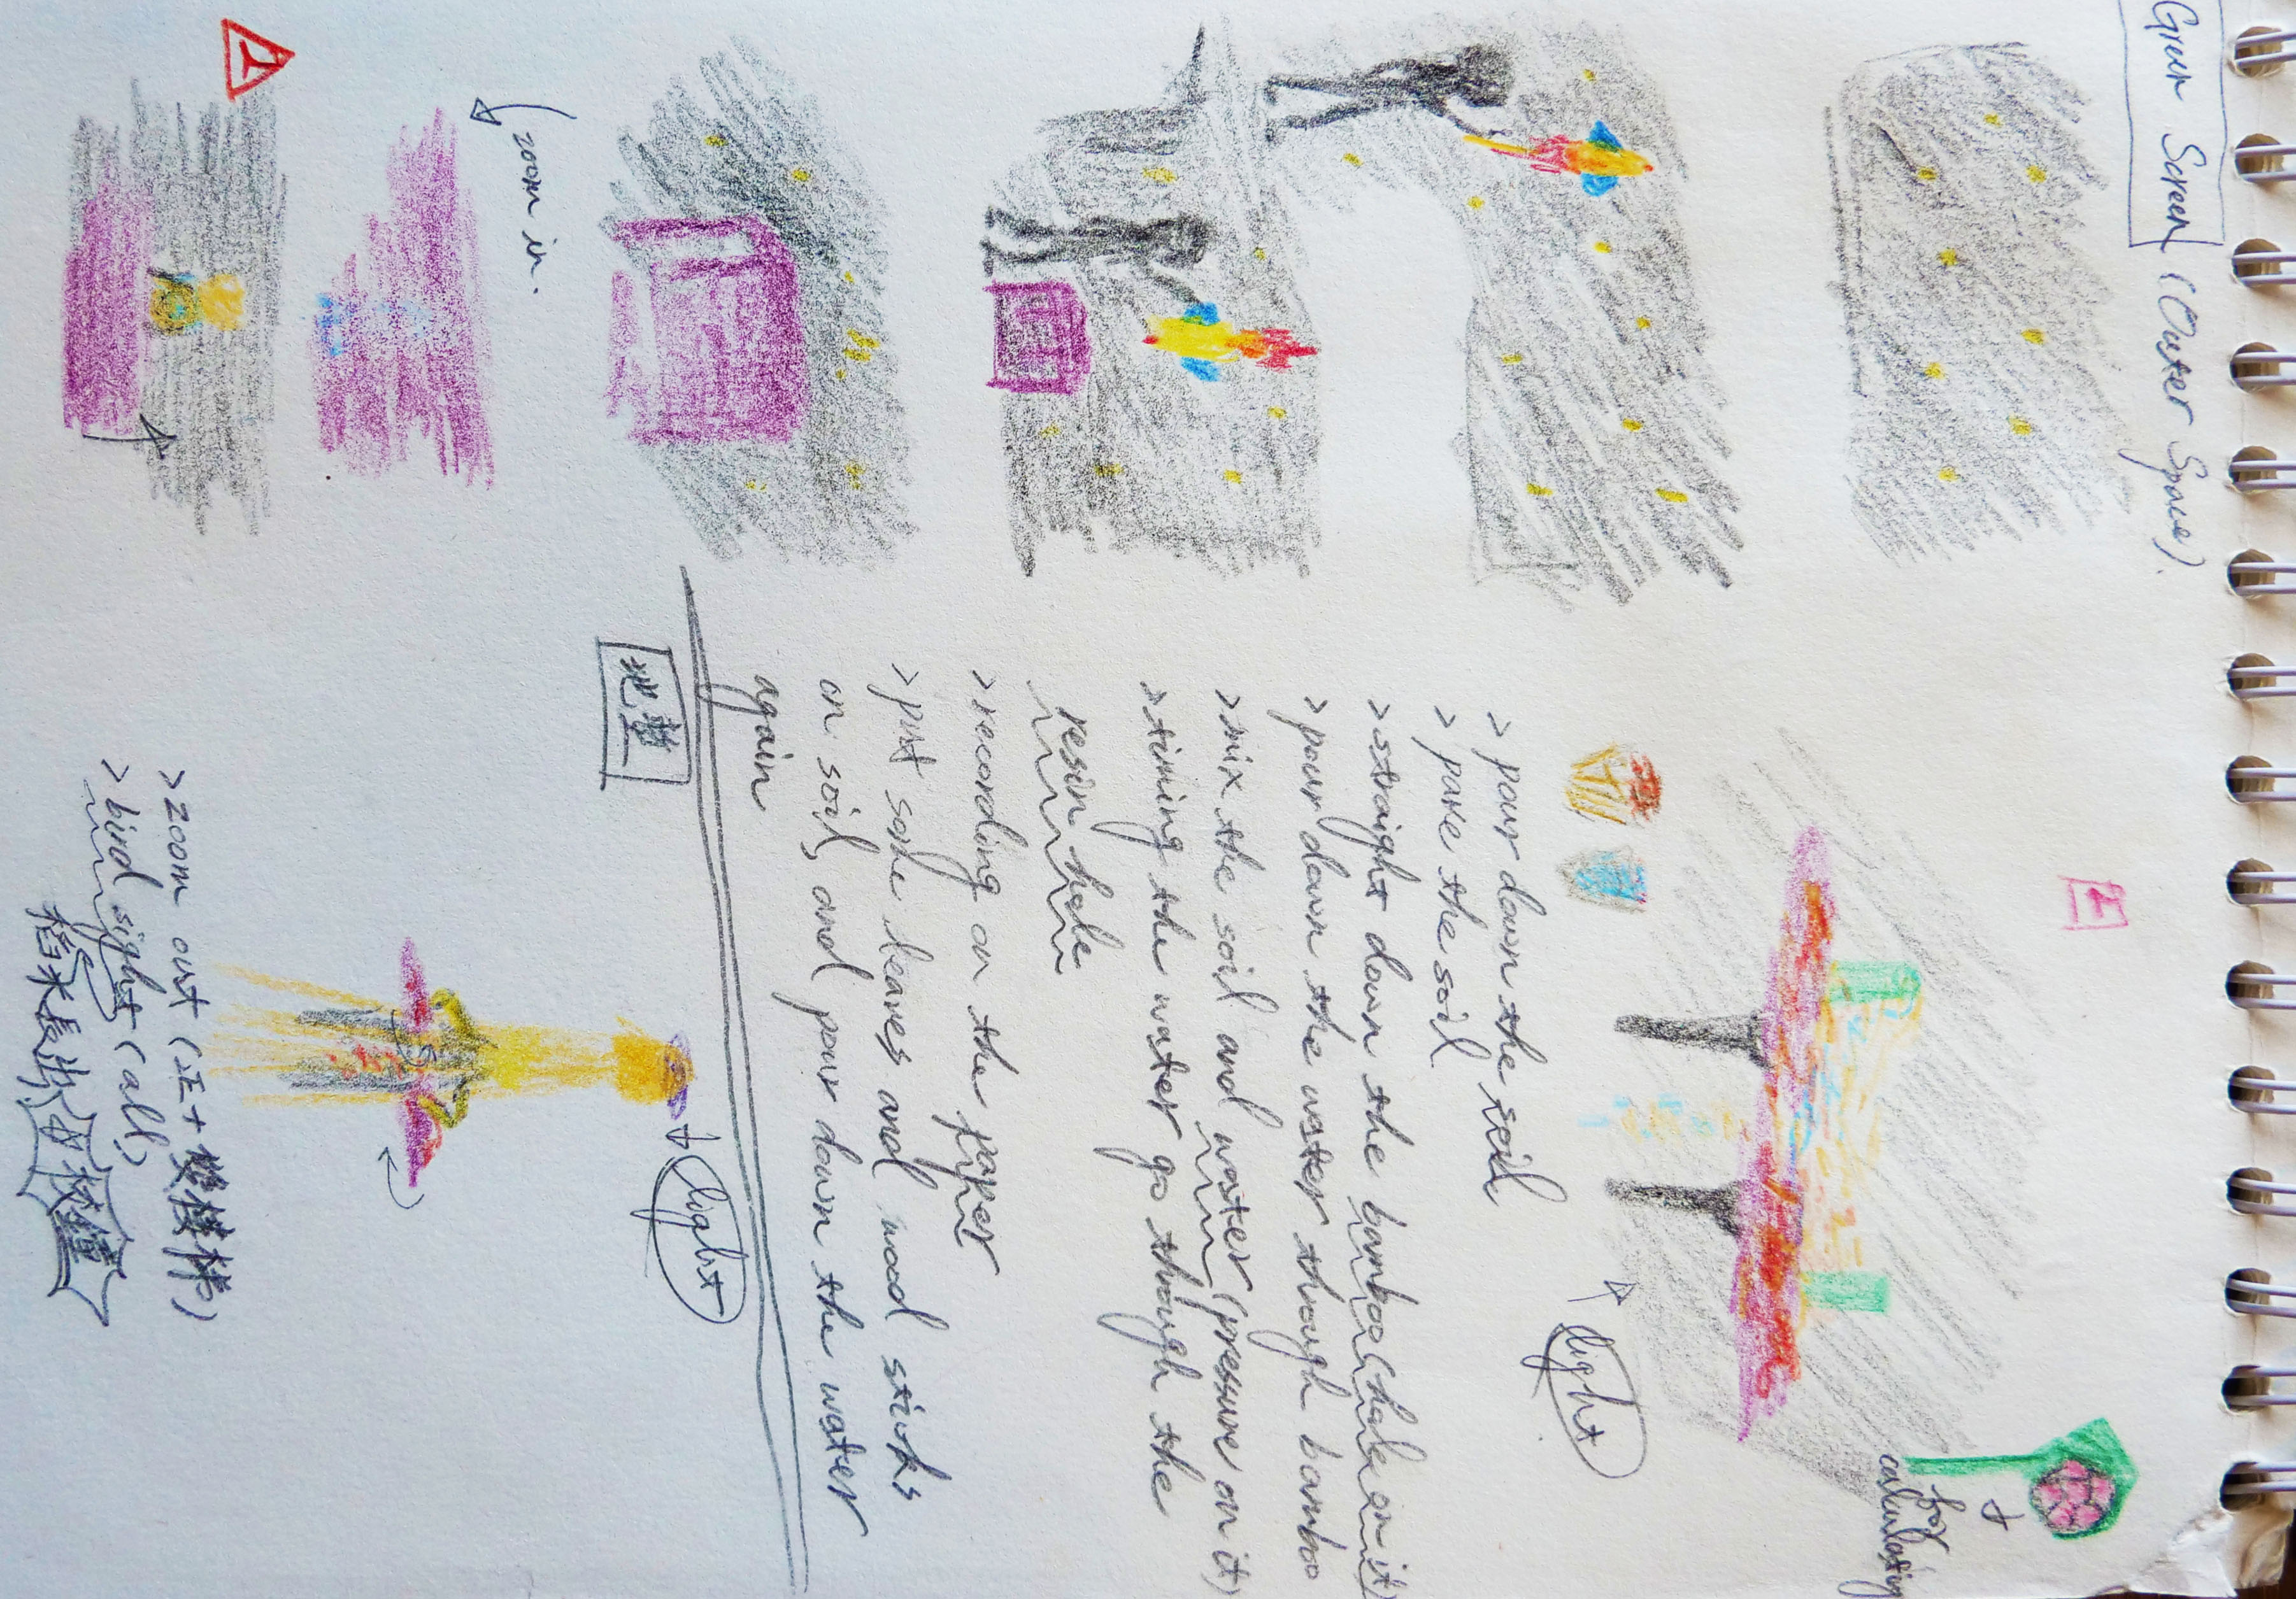 Green Screen (Outer Space).
zoom in.
for
calculating
light
> pour down the soil
> pave the soil
> straight down the bamboo (hole on it)
> pour down the water through bamboo
> mix the soil and water (pressure on it)
> timing the water go through the
resin hole
> recording on the paper
> put some leaves and wood sticks
on soil, and pour down the water
again
light
> zoom out (正+
> bird sight (all)
稻米長出